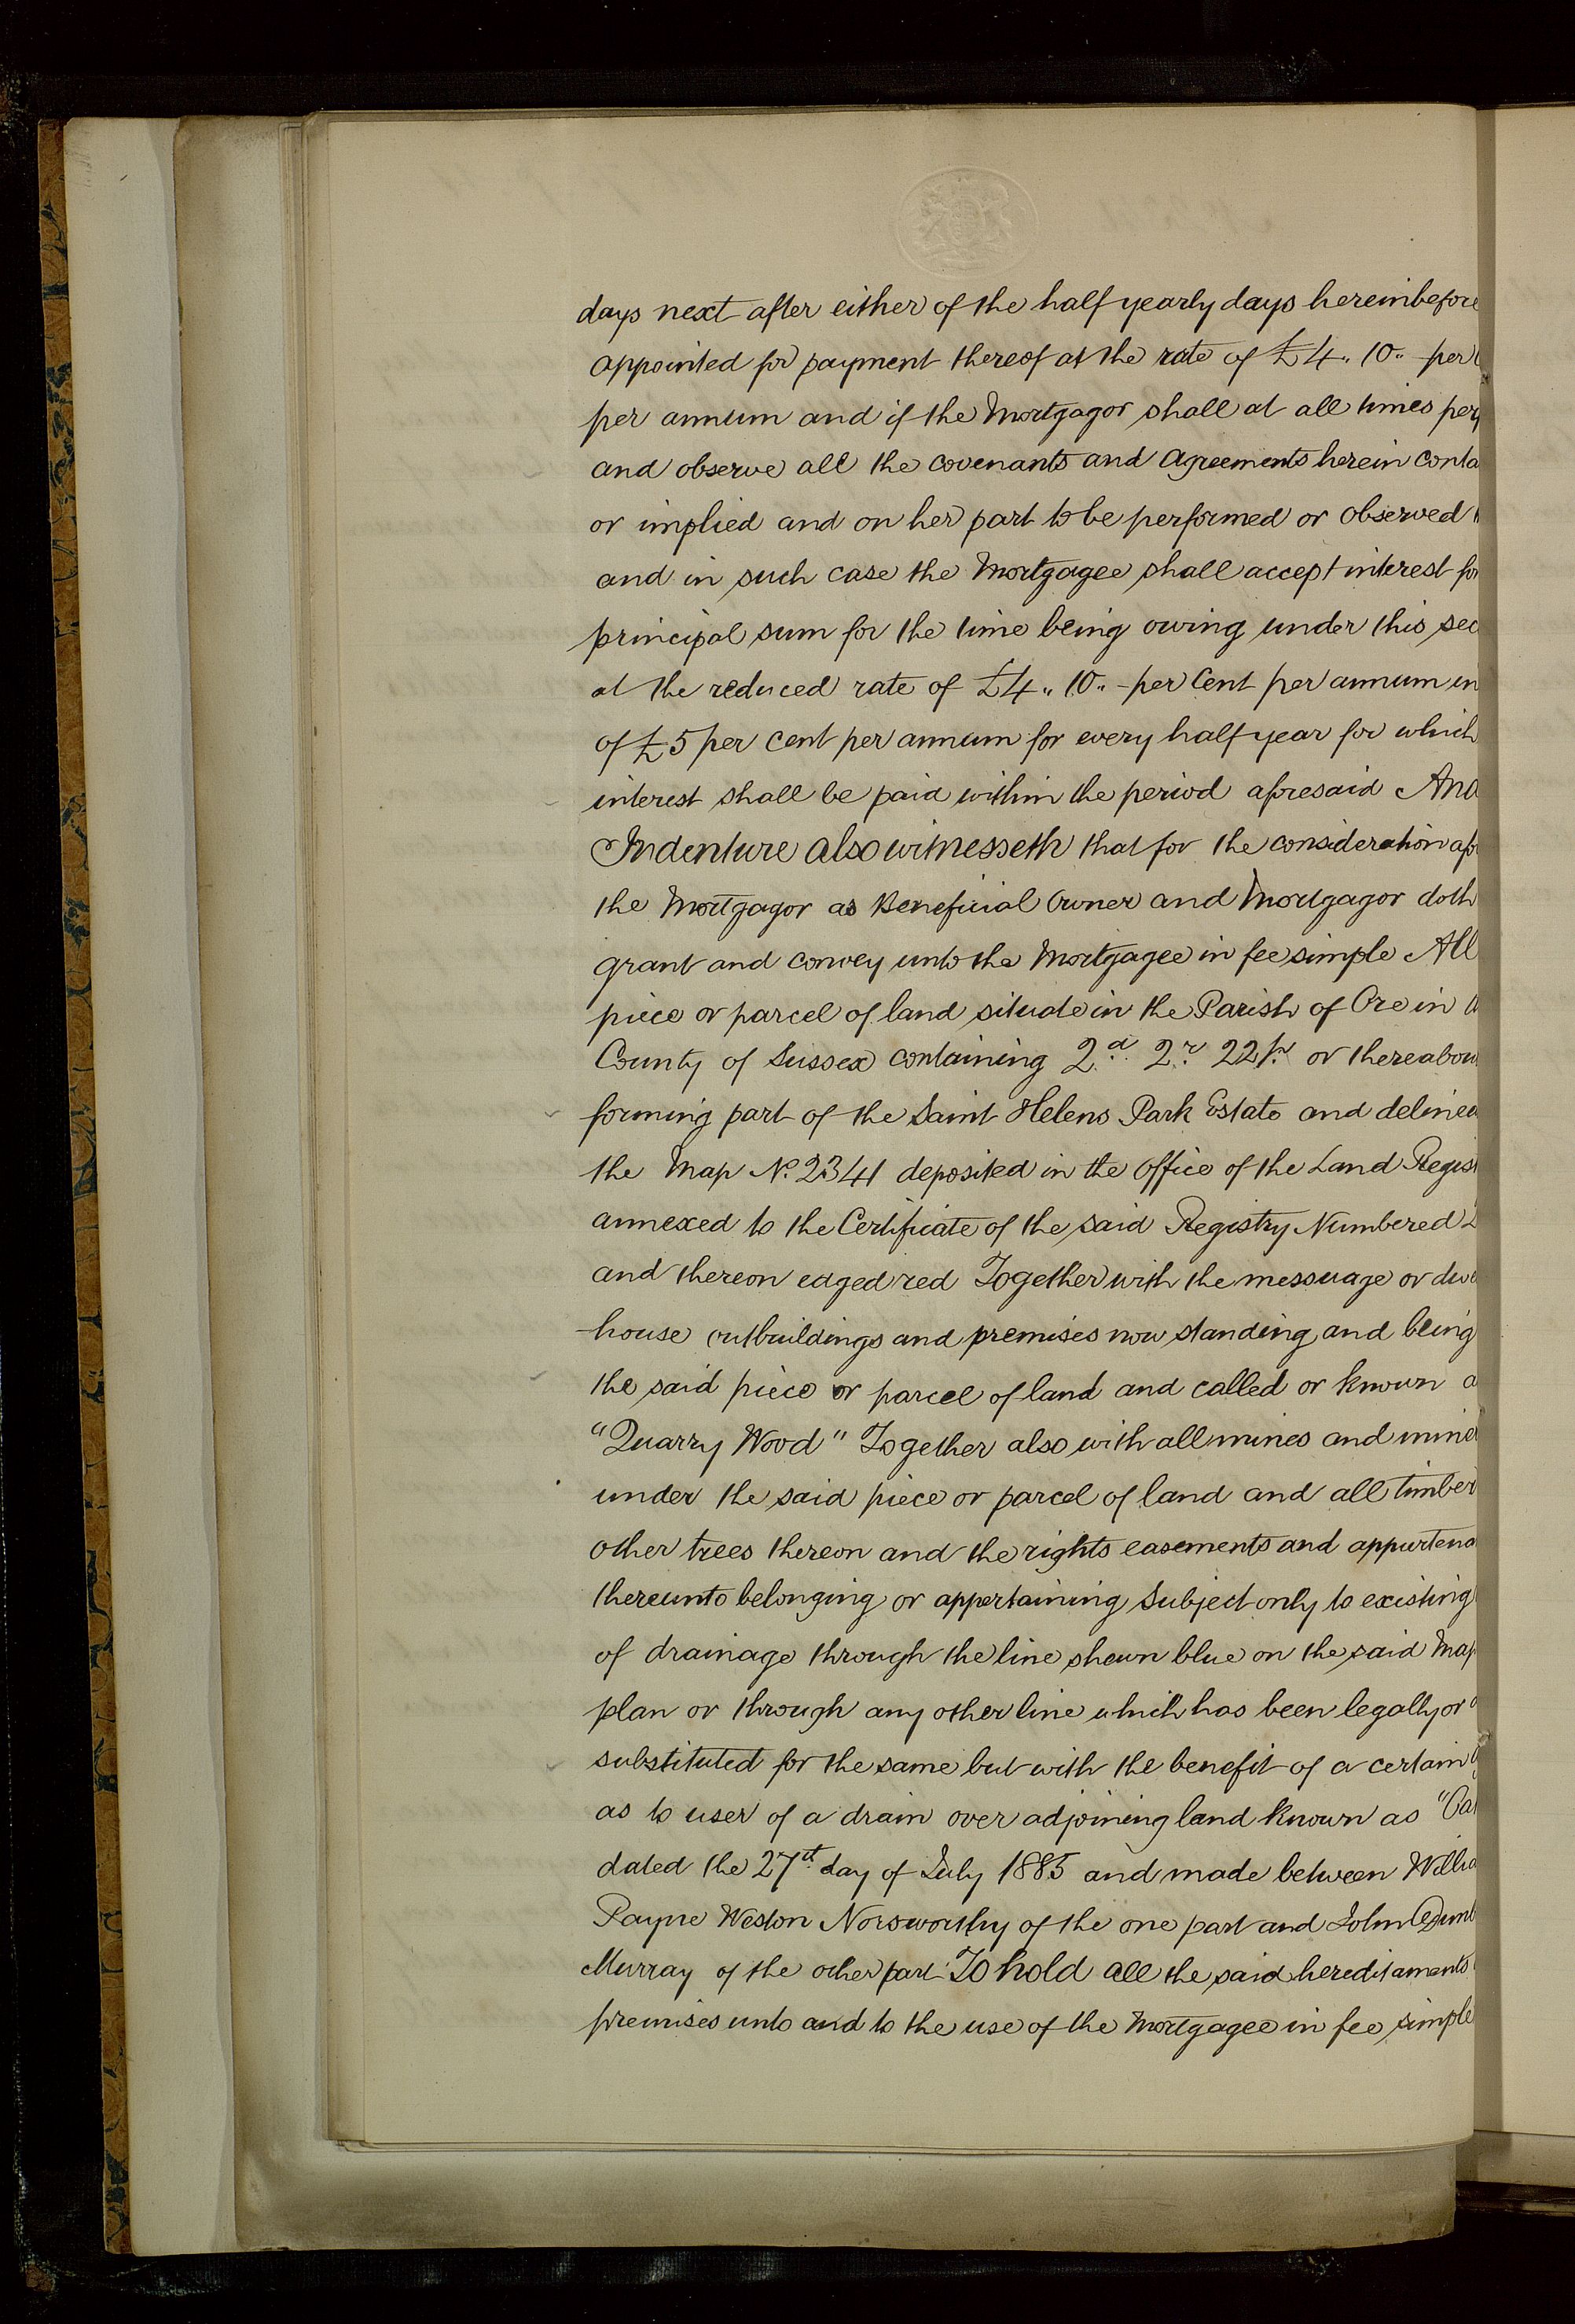 days next after either of the half yearly days hereinbefore
appointed for payment thereof at the rate of £4 " 10 " - per
per annum and if the Mortgagor shall at all times per
and observe all the covenants and agreements herein conta
or implied and on her part to be performed or observed
and in such case the Mortgagee shall accept interest for
principal sum for the time being owing under this sec
at the reduced rate of £4 " 10 " - per Cent per annum in
of £5 per cent per annum for every half year for which
interest shall be paid within the period aforesaid And
Indenture also witnesseth that for the consideration afo
the Mortgagor as Beneficial Owner and Mortgagor doth
grant and convey unto the Mortgagee in fee simple All
piece or parcel of land situate in the Parish of Ore in
County of Sussex containing 2a. 2r. 22p. or thereabou
forming part of the Saint Helens Park Estate and delinea
the Map No. 2341 deposited in the Office of the Land Regist
annexed to the Certificate of the said Registry Numbered
and thereon edged red Together with the messuage or dwe
house outbuildings and premises now standing and being
the said piece or parcel of land and called or known a
"Quarry Wood" Together also with all mines and miner
under the said piece or parcel of land and all timber
other trees thereon and the rights easements and appurtena
thereunto belonging or appertaining Subject only to existing
of drainage through the line shewn blue on the said Map
plan or through any other line which has been legally or
substituted for the same but with the benefit of a certain
as to user of a drain over adjoining land known as
dated the 27th day of July 1885 and made between Willia
Payne Weston Norsworthy of the one part and John
Murray of the other part To hold all the said hereditaments
premises unto and to the use of the Mortgagee in fee simple